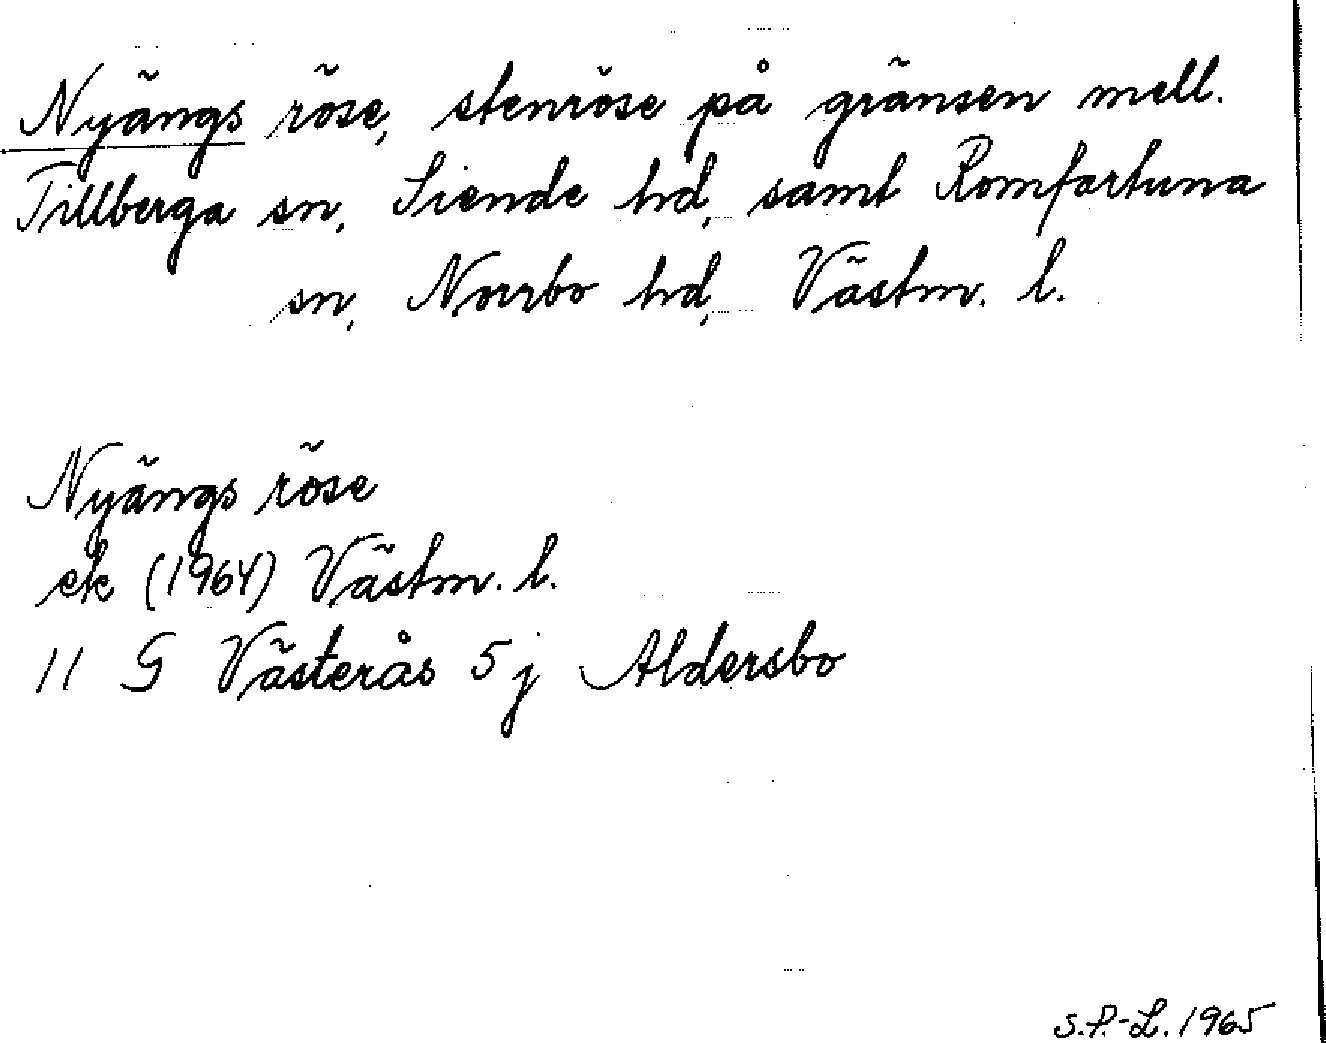 Nyängs röse, stenröse på gränsen mell.
Tillberga sn, Siende hd, samt Romfartuna
sn, Norrbo hd, Västm. l.
Nyängs röse
ek (1964) Västm. l.
11 G Västerås 5 j Aldersbo
S.P.-L. 1965